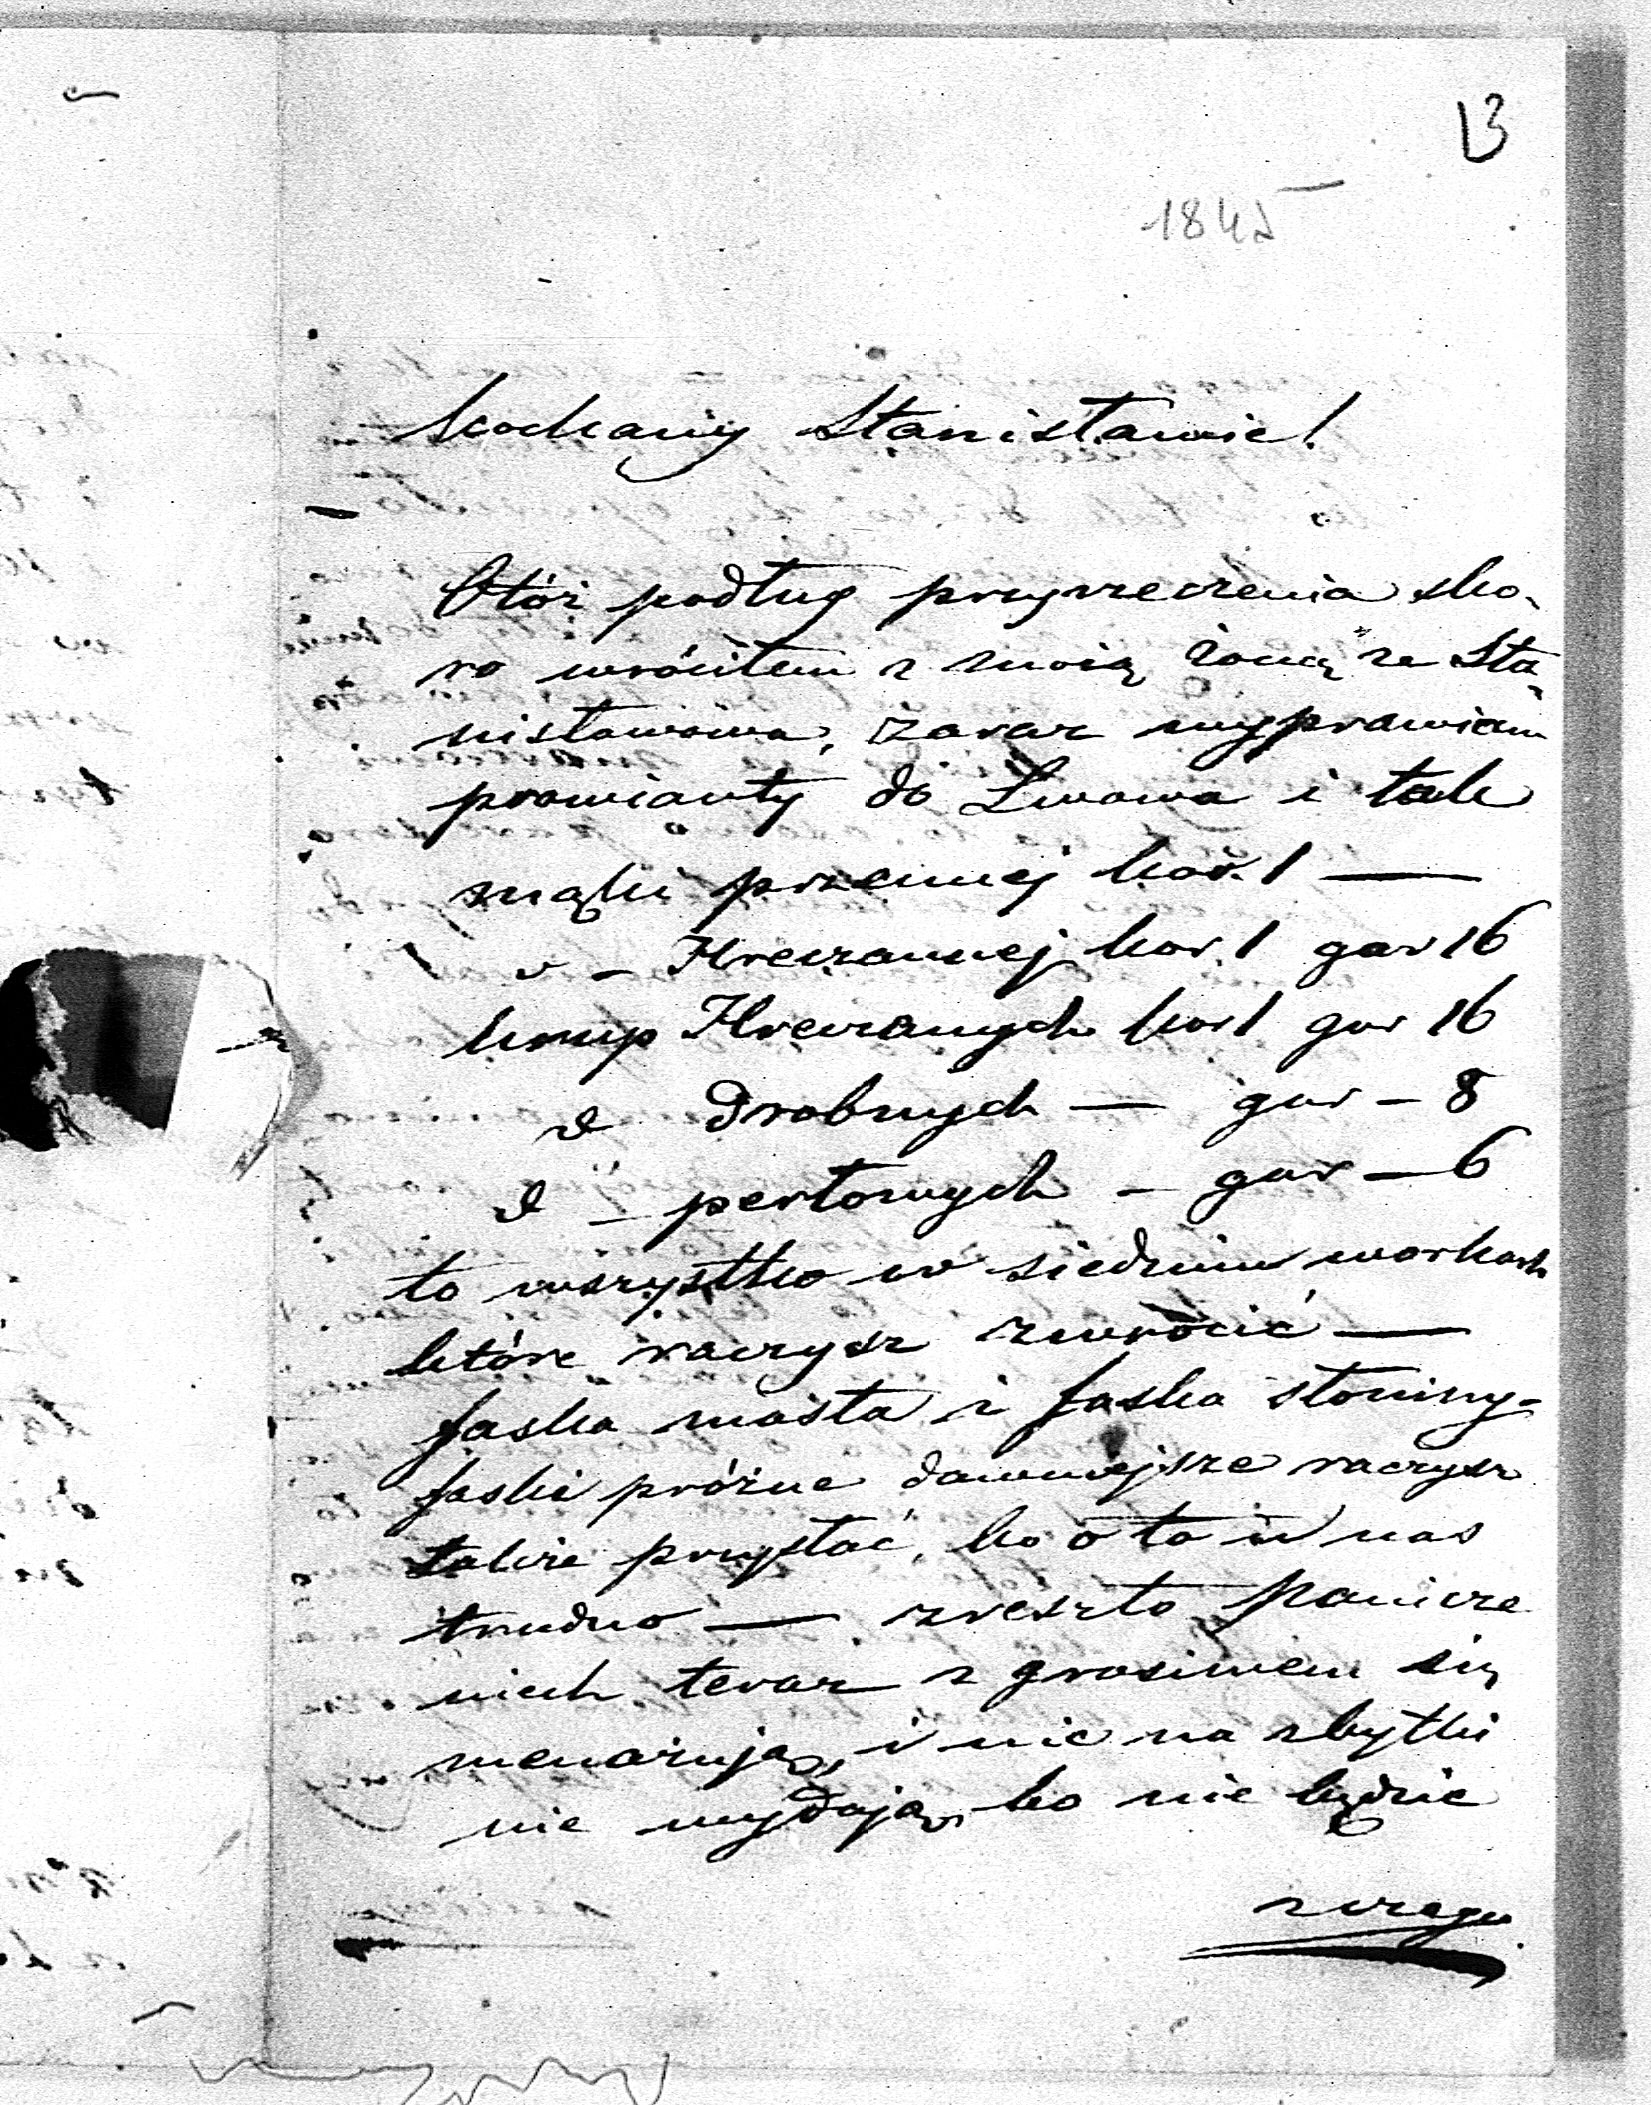 13
1845
Kochany Stanisławie!
Otóż podług przyrzeczenia sko-
ro wróciłem z moią żoną ze Sta-
nisławowa, zaraz wyprawiam
prowianty do Lwowa i tak
mąki przennej kor. 1 —
" - Hreczannej kor. 1 gar 16
krup Hreczanych kor 1 gar 16
d drobnych — gar - 8
d - perłowych - gar - 6
to wszystko w siedmiu workach
które raczysz zwrócić —
faska masła i faska słoniny-
faski próżne dawniejsze raczysz
także przysłać, bo o to u nas
trudno — zreszto Panicze
niech teraz z grosiwem się
menażują, i nic na zbytki
nie wydają, bo nie będzie
z czego